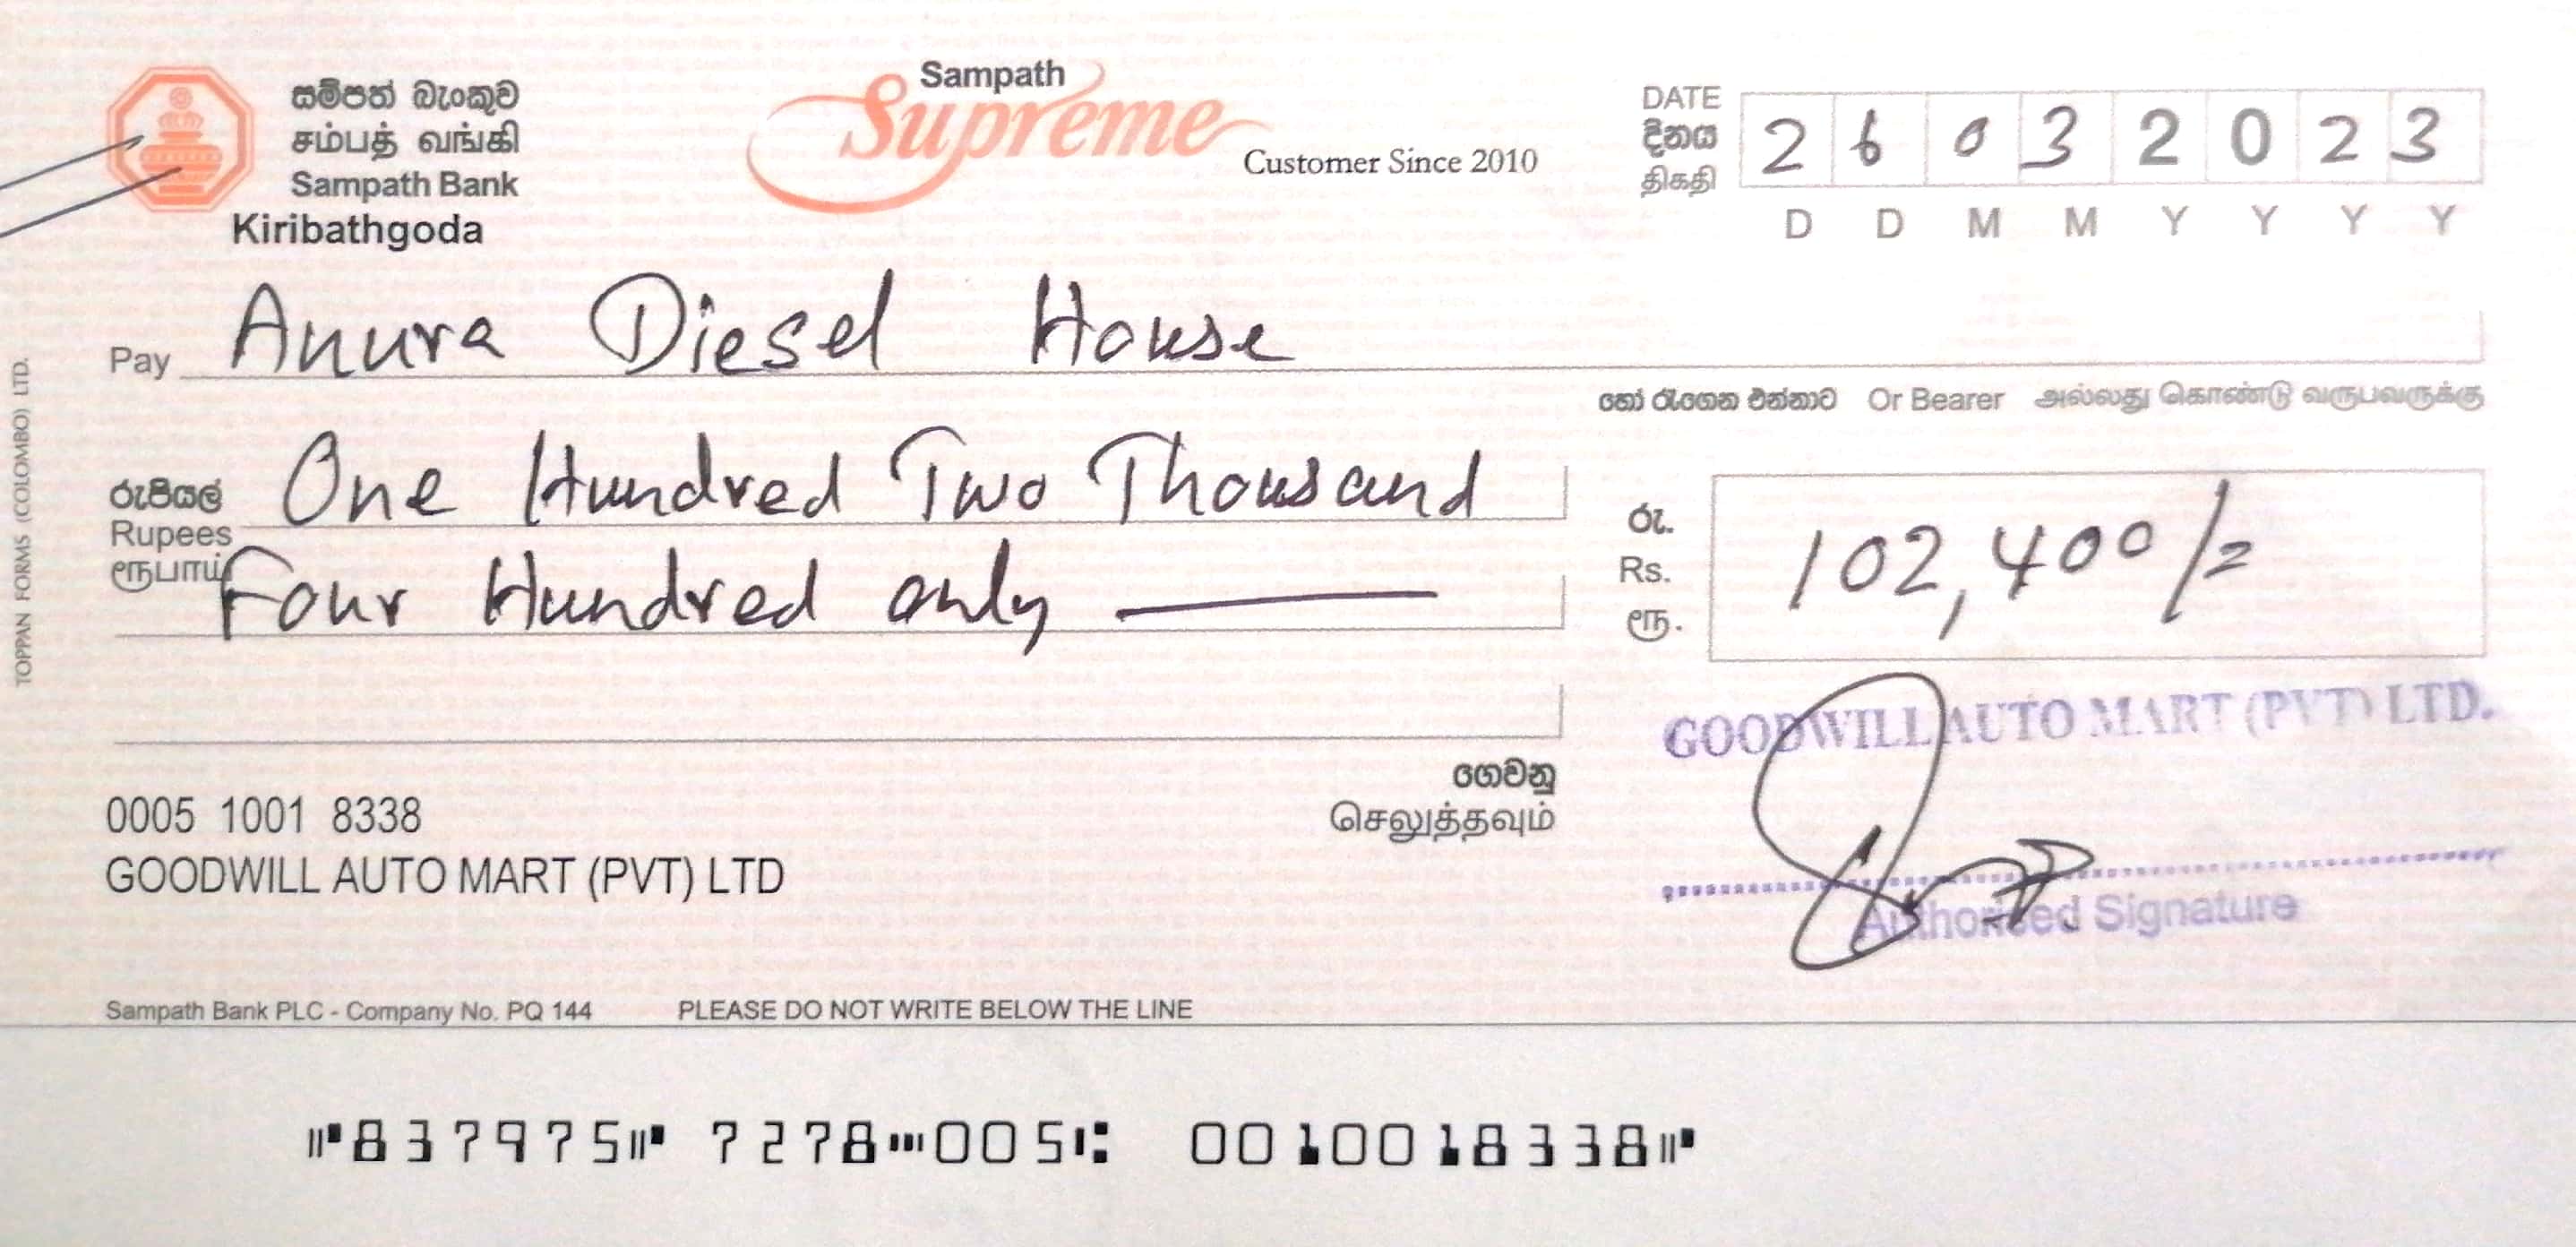 සම්පත් බැංකුව
சம்பத் வங்கி
Sampath Bank
Kiribathgoda
Sampath
Supreme
Customer Since 2010
DATE
දිනය
திகதி
2 6 0 3 2 0 2 3
D D M M Y Y Y Y
Pay Anura Diesel House
හෝ රැගෙන එන්නාට Or Bearer அல்லது கொண்டு வருபவருக்கு
රුපියල් One Hundred Two Thousand
Rupees
ரூபாய் Four Hundred only
රු.
Rs. 102,400/=
ரூ.
ගෙවනු
செலுத்தவும்
GOODWILL AUTO MART (PVT) LTD.
Authorised Signature
0005 1001 8338
GOODWILL AUTO MART (PVT) LTD
Sampath Bank PLC - Company No. PQ 144 PLEASE DO NOT WRITE BELOW THE LINE
⑈837975⑈ 7278⑉005⑆ 0010018338⑈
TOPPAN FORMS (COLOMBO) LTD.